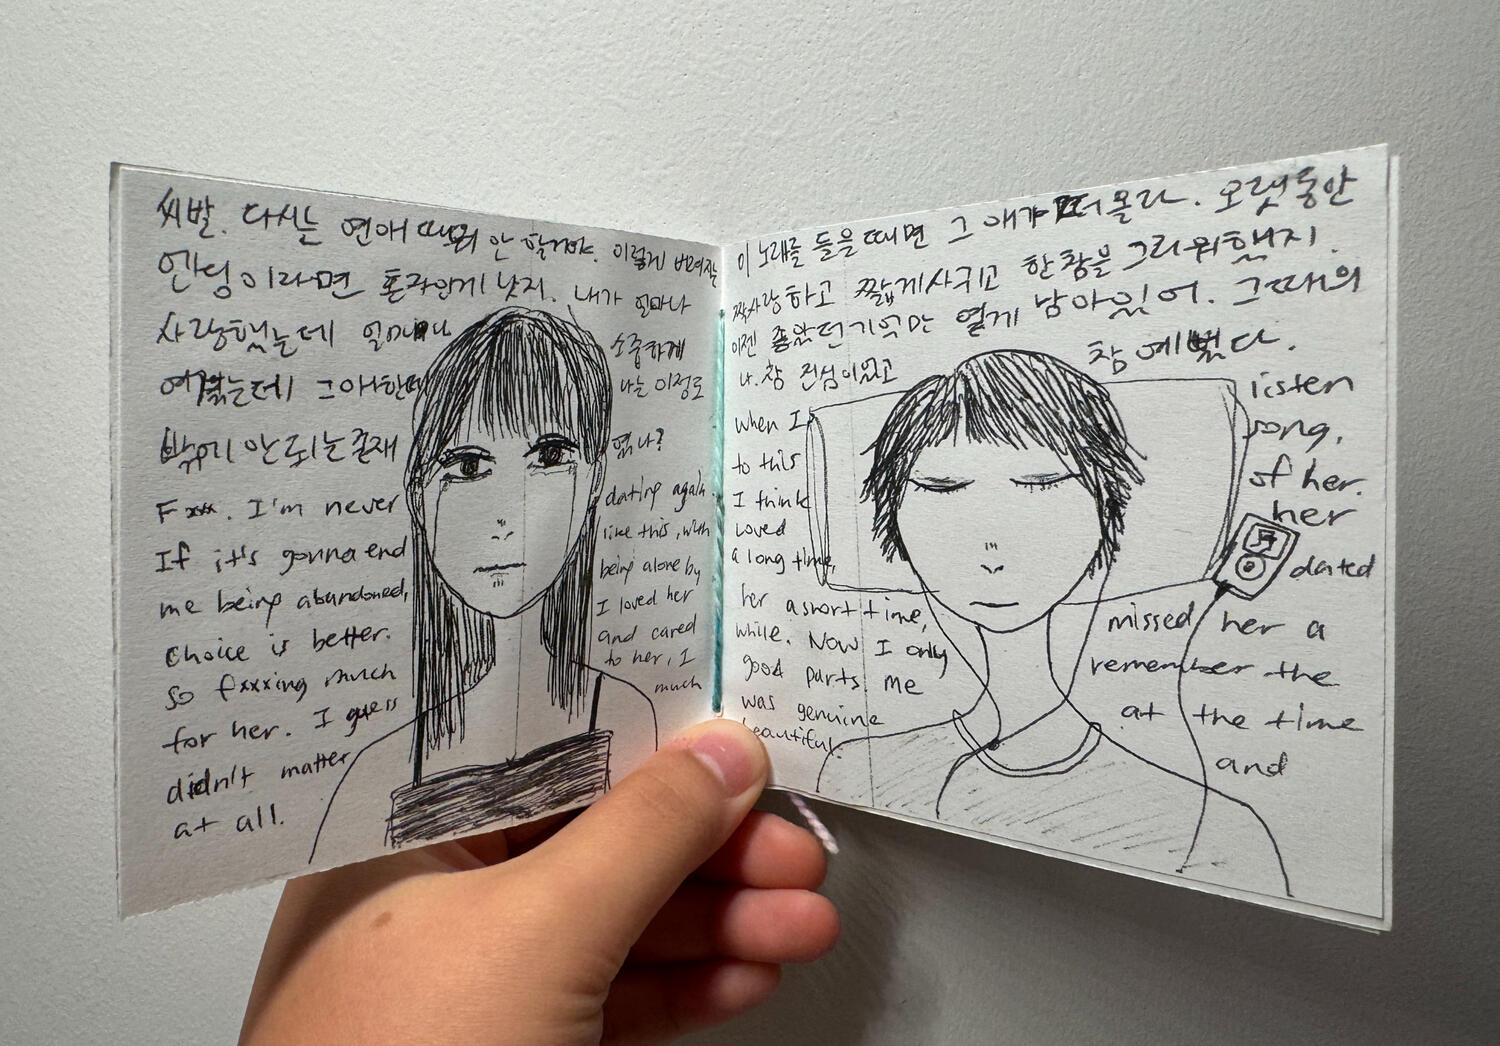 씨발. 다시는 연애 따위 안 할거야. 이렇게 버려질
엔딩이라면 혼자인게 낫지. 내가 얼마나
사랑했는데 얼마나 소중하게
여겼는데 그 애한텐 나는 이정도
밖에 안 되는 존재 였나?
Fxxx. I'm never dating again.
If it's gonna end like this, with
me being abandoned, being alone by
choice is better. I loved her
so fxxxing much and cared
for her. I guess to her, I
didn't matter much
at all.
이 노래를 들을 때면 그 애가 떠올라. 오랫동안
짝사랑하고 짧게 사귀고 한참을 그리워했지.
이젠 좋았던 기억만 옅게 남아있어. 그때의
나. 참 진심이었고 참 예뻤다.
when I listen
to this song,
I think of her.
loved her
a long time, dated
her a short time, missed her a
while. Now I only remember the
good parts me at the time
was genuine and
beautiful.